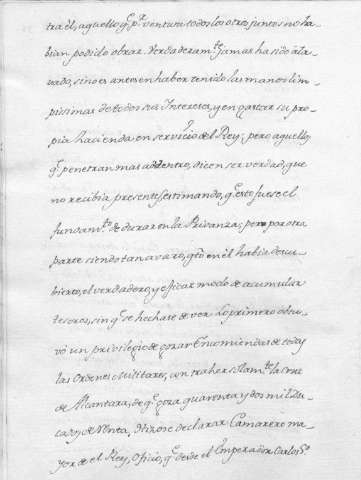 tra èl, aquello q.e p.r ventura todos los otros juntos no ha-
bian podido obrar. Verdaderam.te jamas ha sido ala-
vado, sino es antes en haber tenido las manos lim-
pissimas de todos sus Interesses, y en gastar su pro-
pia hacienda en servicio de el Rey; pero aquellos
q.e penetran mas addentro, dicen ser verdad, que
no recibia presentes, estimando, q.e esto fuese el
fundam.to de durar en la Privanza; pero por otra
parte siendo tan avaro, q.to en èl habia descu-
bierto, el verdadero, y eficaz modo de acumular
tesoros, sin q.e se hechase de ver. Lo primero obtu-
vò un privilegio de gozar Encomiendas de todas
las Ordenes Militares, con traher solam.te la cruz
de Alcantara, de q.e goza quarenta y dos mil Du-
cados de Renta, hizose declarar Camarero ma-
yor de el Rey, Oficio, q.e desde el Emperador Carlos 5.o